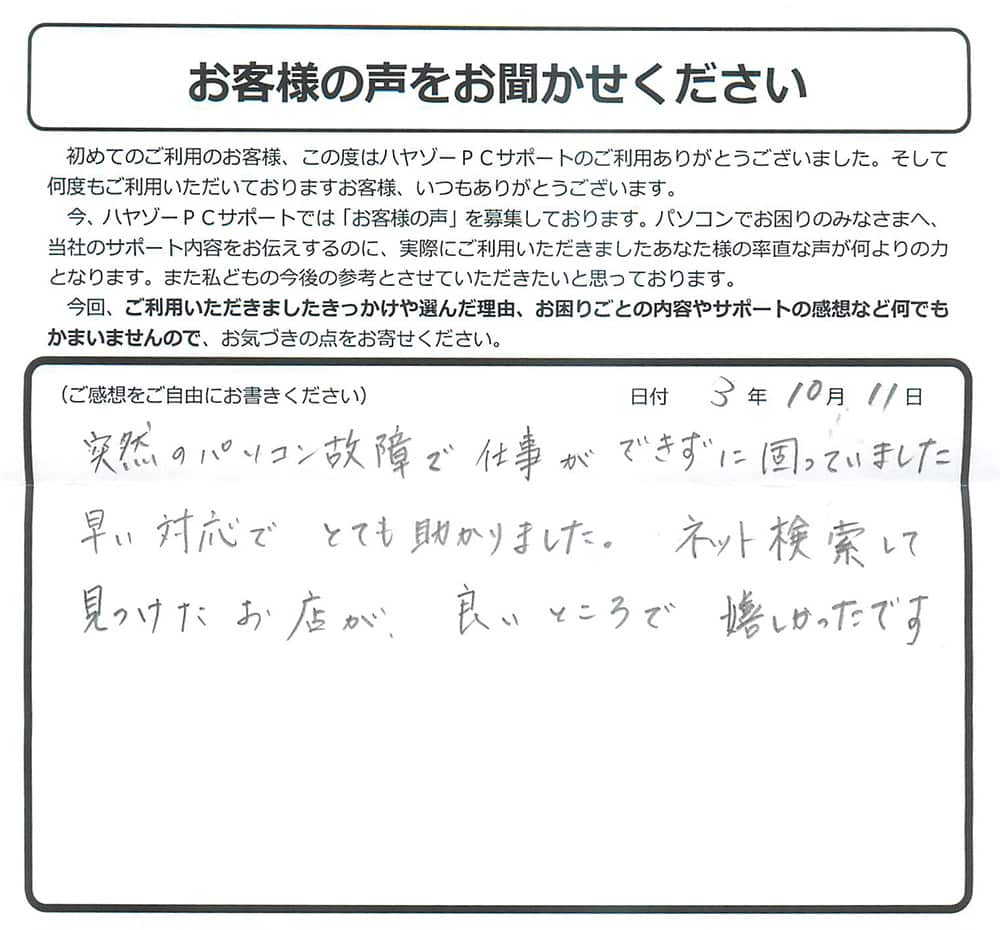 お客様の声をお聞かせください
初めてのご利用のお客様、この度はハヤゾーPCサポートのご利用ありがとうございました。そして
何度もご利用いただいておりますお客様、いつもありがとうございます。
今、ハヤゾーPCサポートでは「お客様の声」を募集しております。パソコンでお困りのみなさまへ、
当社のサポート内容をお伝えするのに、実際にご利用いただきましたあなた様の率直な声が何よりの力
となります。また私どもの今後の参考とさせていただきたいと思っております。
今回、ご利用いただきましたきっかけや選んだ理由、お困りごとの内容やサポートの感想など何でも
かまいませんので、お気づきの点をお寄せください。
(ご感想をご自由にお書きください) 日付 3年10月11日
突然のパソコン故障で仕事ができずに困っていました
早い対応でとても助かりました。ネット検索して
見つけたお店が、良いところで嬉しかったです